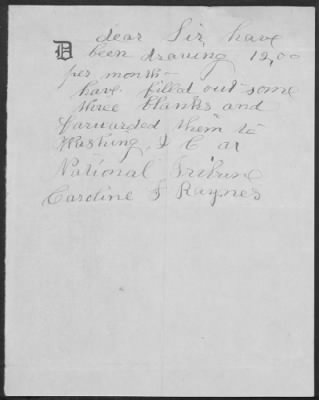 dear Sir, have
D been drawing 12,00
per month-
have filled out some
three blanks and
forwarded them to
Washing, D C at
National Tribune
Caroline F Raynes